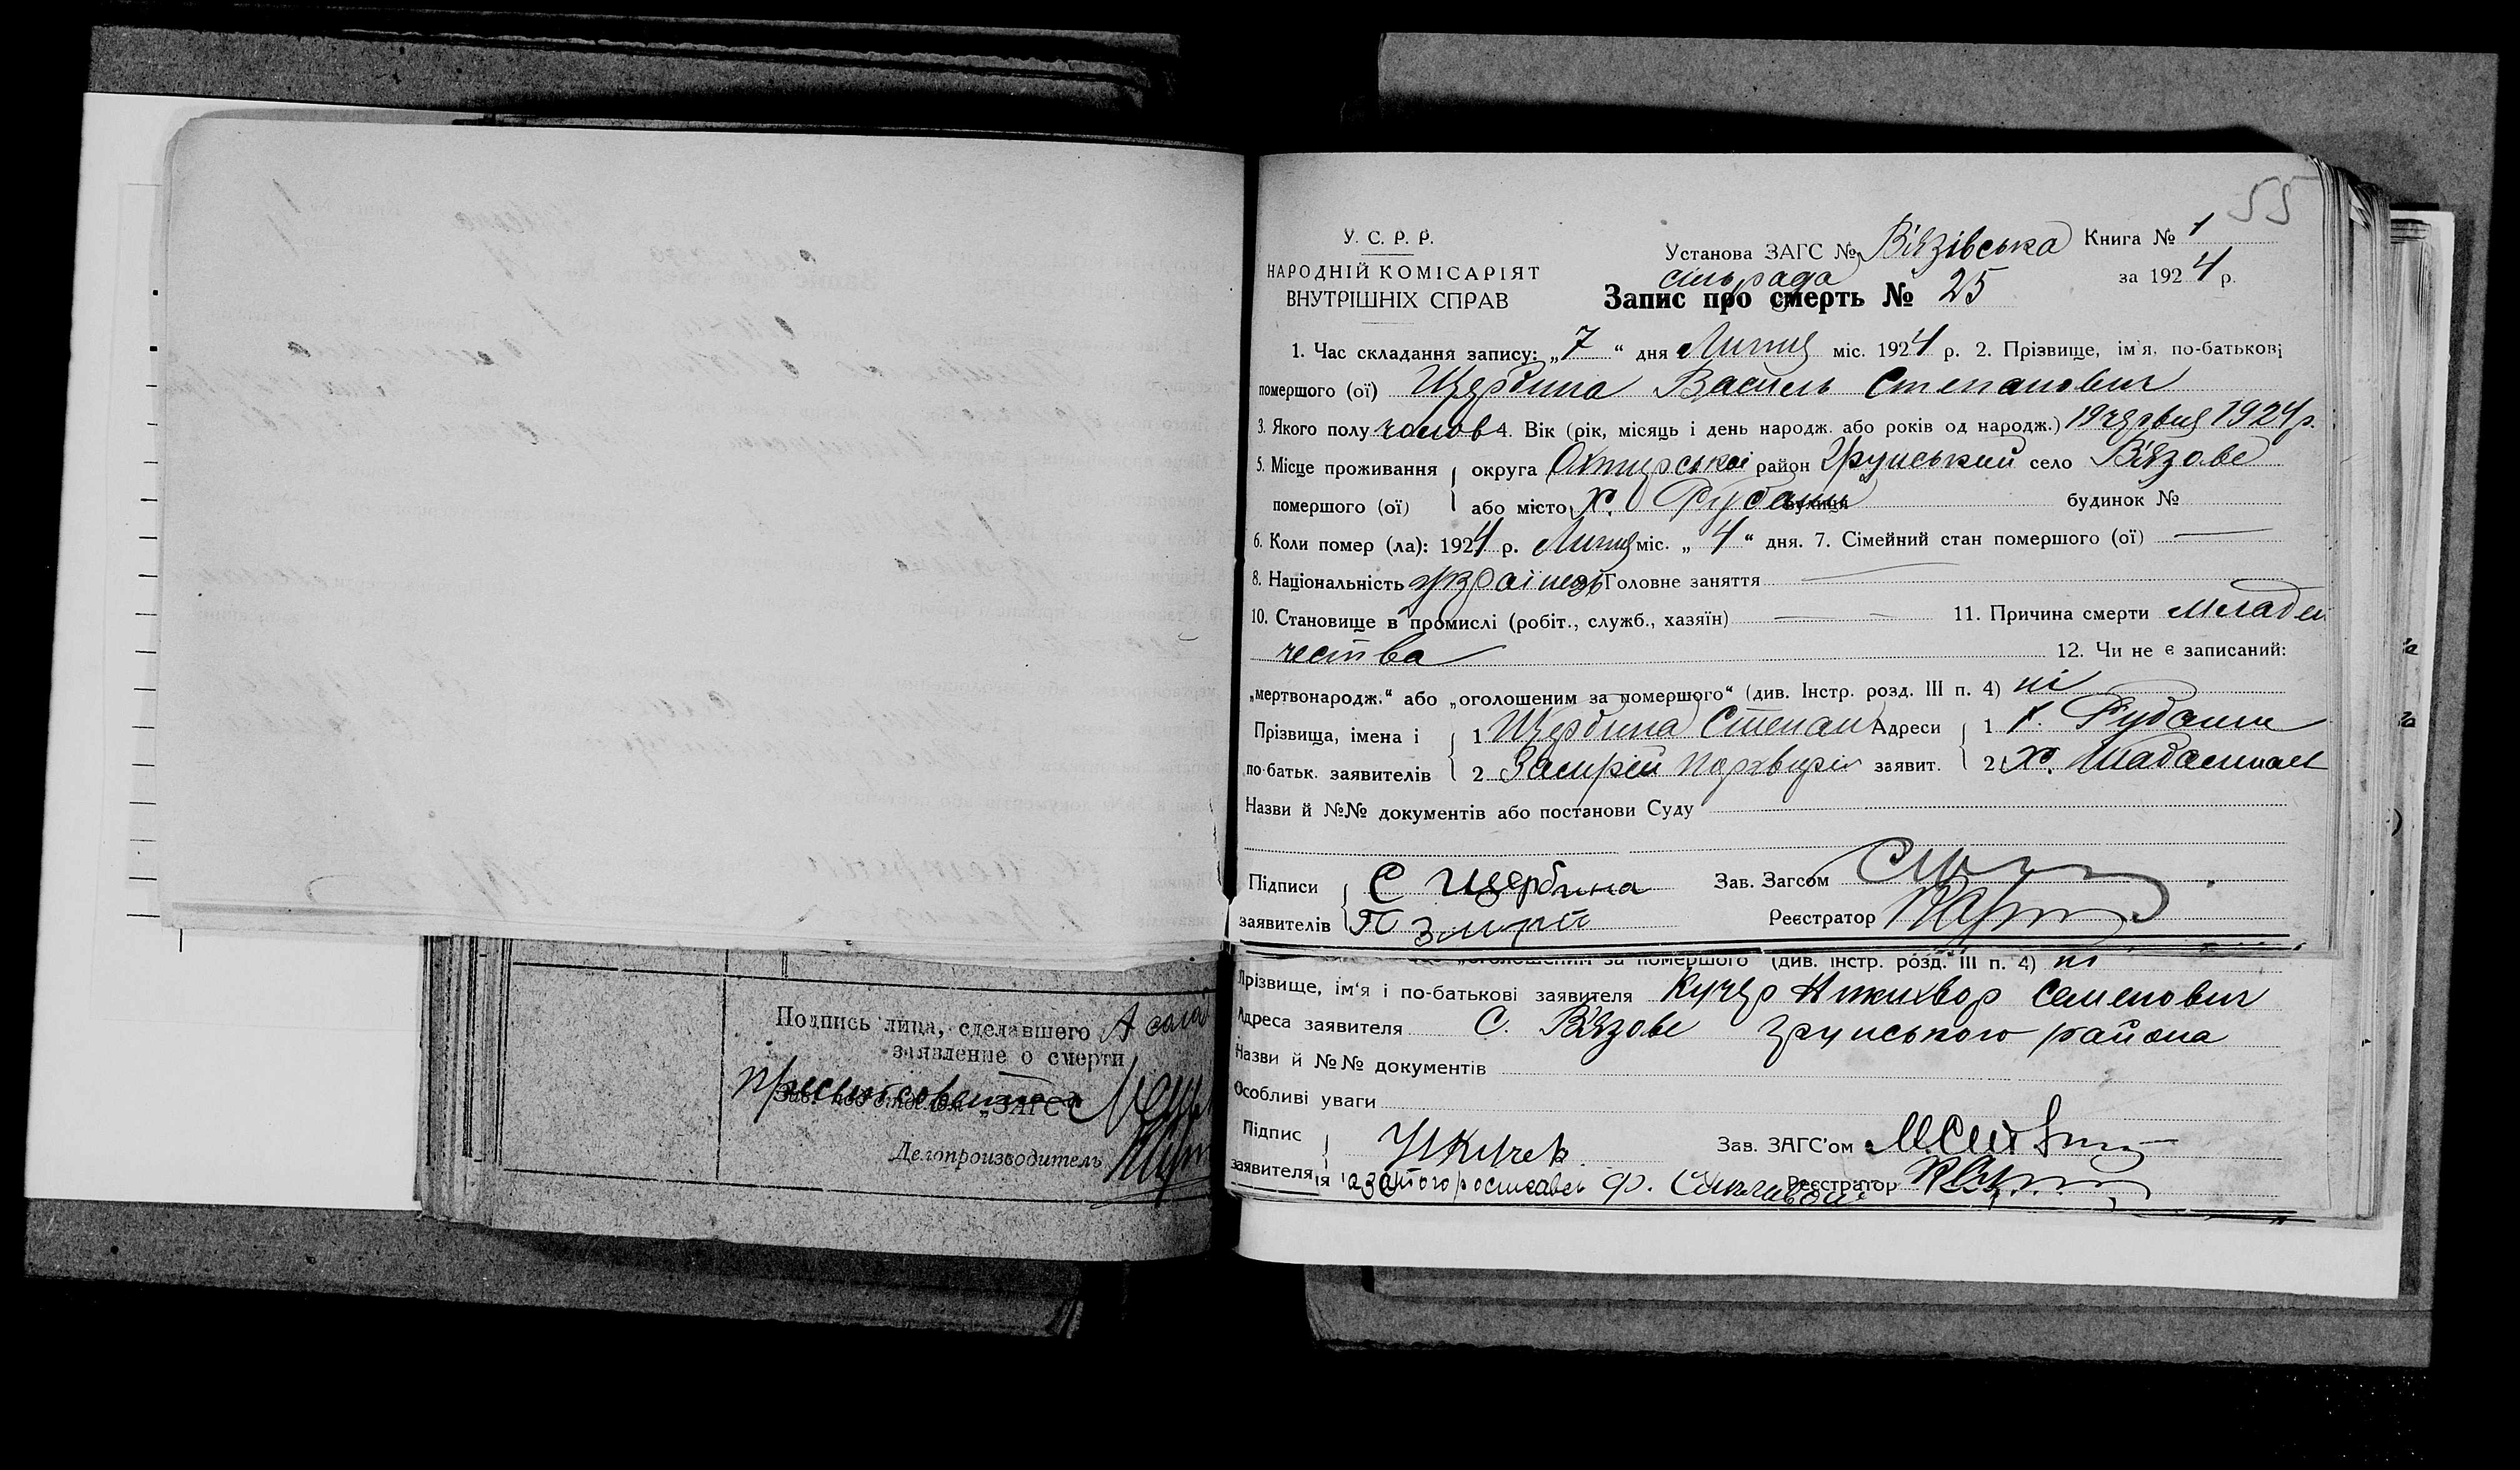 55
У. С. Р. Р.
НАРОДНІЙ КОМІСАРІЯТ
ВНУТРІШНІХ СПРАВ
Установа ЗАГС № Вязівська Книга № 1
сільрада за 1924 р.
Запис про смерть № 25
1. Час складання запису: „7“ дня Липця міс. 1924 р. 2. Прізвище, ім'я, по-батькові
помершого (ої) Щербина Василь Степанович
3. Якого полу чолов 4. Вік (рік, місяць і день народж. або років од народж.) 19 червця 1924 р.
5. Місце проживання округа Охтирської район Грунський село Вязове
помершого (ої) або місто х. Рубани вулиця будинок №
6. Коли помер (ла): 1924 р. Липця міс. „4“ дня. 7. Сімейний стан помершого (ої) —
8. Національність українець Головне заняття —
10. Становище в промислі (робіт., служб., хазяїн) — 11. Причина смерти младен
чества 12. Чи не є записаний:
„мертвонародж.“ або „оголошеним за помершого“ (див. Інстр. розд. III п. 4) ні
Прізвища, імена і 1 Щербина Степан Адреси 1 х. Рубани
по-батьк. заявителів 2 заявит. 2 х.
Назви й №№ документів або постанови Суду
Підписи С Щербина Зав. Загсом
заявителів П Реєстратор
„оголошеним за помершого“ (див. Інстр. розд. III п. 4) ні
Прізвище, ім'я і по-батькові заявителя Кучер Семенович
Адреса заявителя С. Вязове Грунського района
Назви й №№ документів
Особливі уваги
Підпис Зав. ЗАГС'ом
заявителя Реєстратор
Подпись лица, сделавшего
заявление о смерти
„ЗАГС“
Делопроизводитель